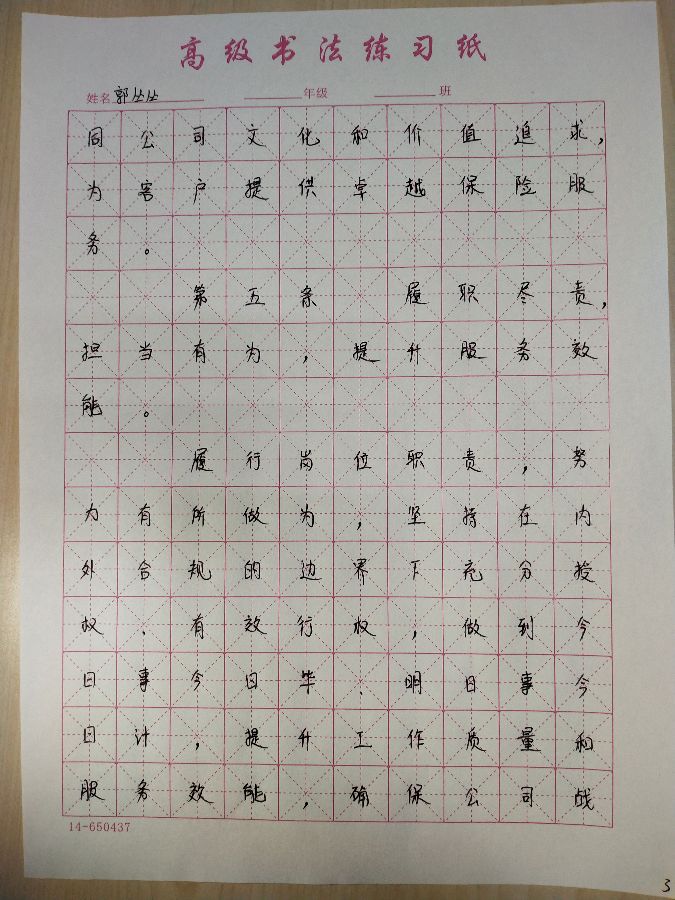 高级书法练习纸
姓名 郭丛丛 年级 班
同公司文化和价值追求，
为客户提供卓越保险服
务。
第五条 履职尽责，
担当有为，提升服务效
能。
履行岗位职责，努
力有所做为，坚持在内
外合规的边界下充分授
权、有效行权，做到今
日事今日毕、明日事今
日计，提升工作质量和
服务效能，确保公司战
14-650437
3